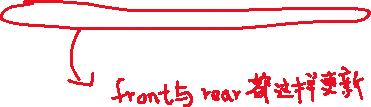 front与rear都这样更新